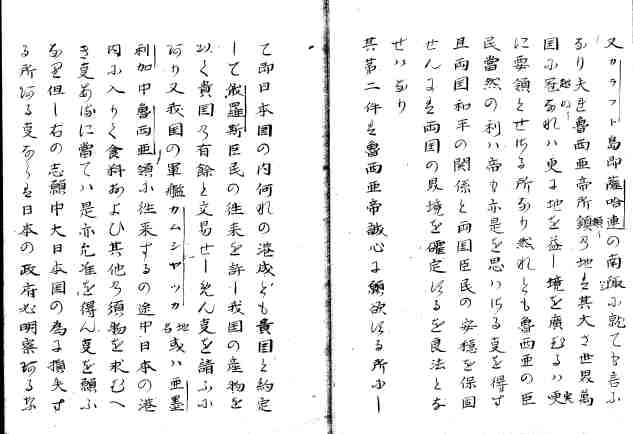 又カラフト島即薩哈連の南諏に就ても言ふ
なり夫を魯西亜帝所領の地は其大さ世界萬
国に冠なれハ更に地を益し境を廣むるハ更
に要領とせさる所なり然れとも魯西亜の臣
民當然の利ハ帝も亦是を思ハさる事を得す
且両国和平の関係と両国臣民の安穏を保固
せんには両国の界境を確定するを良法とな
せハなり
其第二件は魯西亜帝誠心に願欲する所にし
て即日本国の内何れの港成とも貴国と約定
して俄羅斯臣民の往来を許し我国の産物を
以て貴国の有餘と交易せしめん事を請ふに
あり又我国の軍艦カムシヤツカ地名或ハ亜墨
利加中魯西亜領に往来するの途中日本の港
内に入りて食料および其他の須物を求むへ
き事ある時に當てハ是亦允准を得ん事を願ふ
なり但し右の志願中大日本国の為に損失す
る所ある事なきは日本の政府必明察あるな